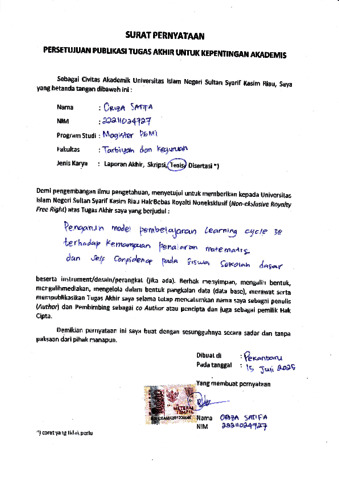 SURAT PERNYATAAN
PERSETUJUAN PUBLIKASI TUGAS AKHIR UNTUK KEPENTINGAN AKADEMIS
Sebagai Civitas Akademik Universitas Islam Negeri Sultan Syarif Kasim Riau, Saya
yang betanda tangan dibawah ini :
Nama : ORIZA SATIFA
NIM : 22211024727
Program Studi : Magister PGMI
Fakultas : Tarbiyah dan Keguruan
Jenis Karya : Laporan Akhir, Skripsi, Tesis, Disertasi *)
Demi pengembangan ilmu pengetahuan, menyetujui untuk memberikan kepada Universitas
Islam Negeri Sultan Syarif Kasim Riau Hak Bebas Royalti Noneksklusif (Non-eksklusive Royalty
Free Right) atas Tugas Akhir saya yang berjudul :
model pembelajaran Learning cycle 5E
terhadap kemampuan penalaran matematis
dan Self Confidence pada siswa sekolah dasar
beserta instrument/desain/perangkat (jika ada). Berhak menyimpan, mengalih bentuk,
mengalihmediakan, mengelola dalam bentuk pangkalan data (data base), merawat serta
mempublikasikan Tugas Akhir saya selama tetap mencantumkan nama saya sebagai penulis
(Author) dan Pembimbing sebagai co Author atau pencipta dan juga sebagai pemilik Hak
Cipta.
Demikian pernyataan ini saya buat dengan sesungguhnya secara sadar dan tanpa
paksaan dari pihak manapun.
Dibuat di : Pekanbaru
Pada tanggal : 15 Juli 2025
Yang membuat pernyataan
METERAI
TEMPEL
Nama ORIZA SATIFA
NIM 22211024727
*) coret yang tidak perlu